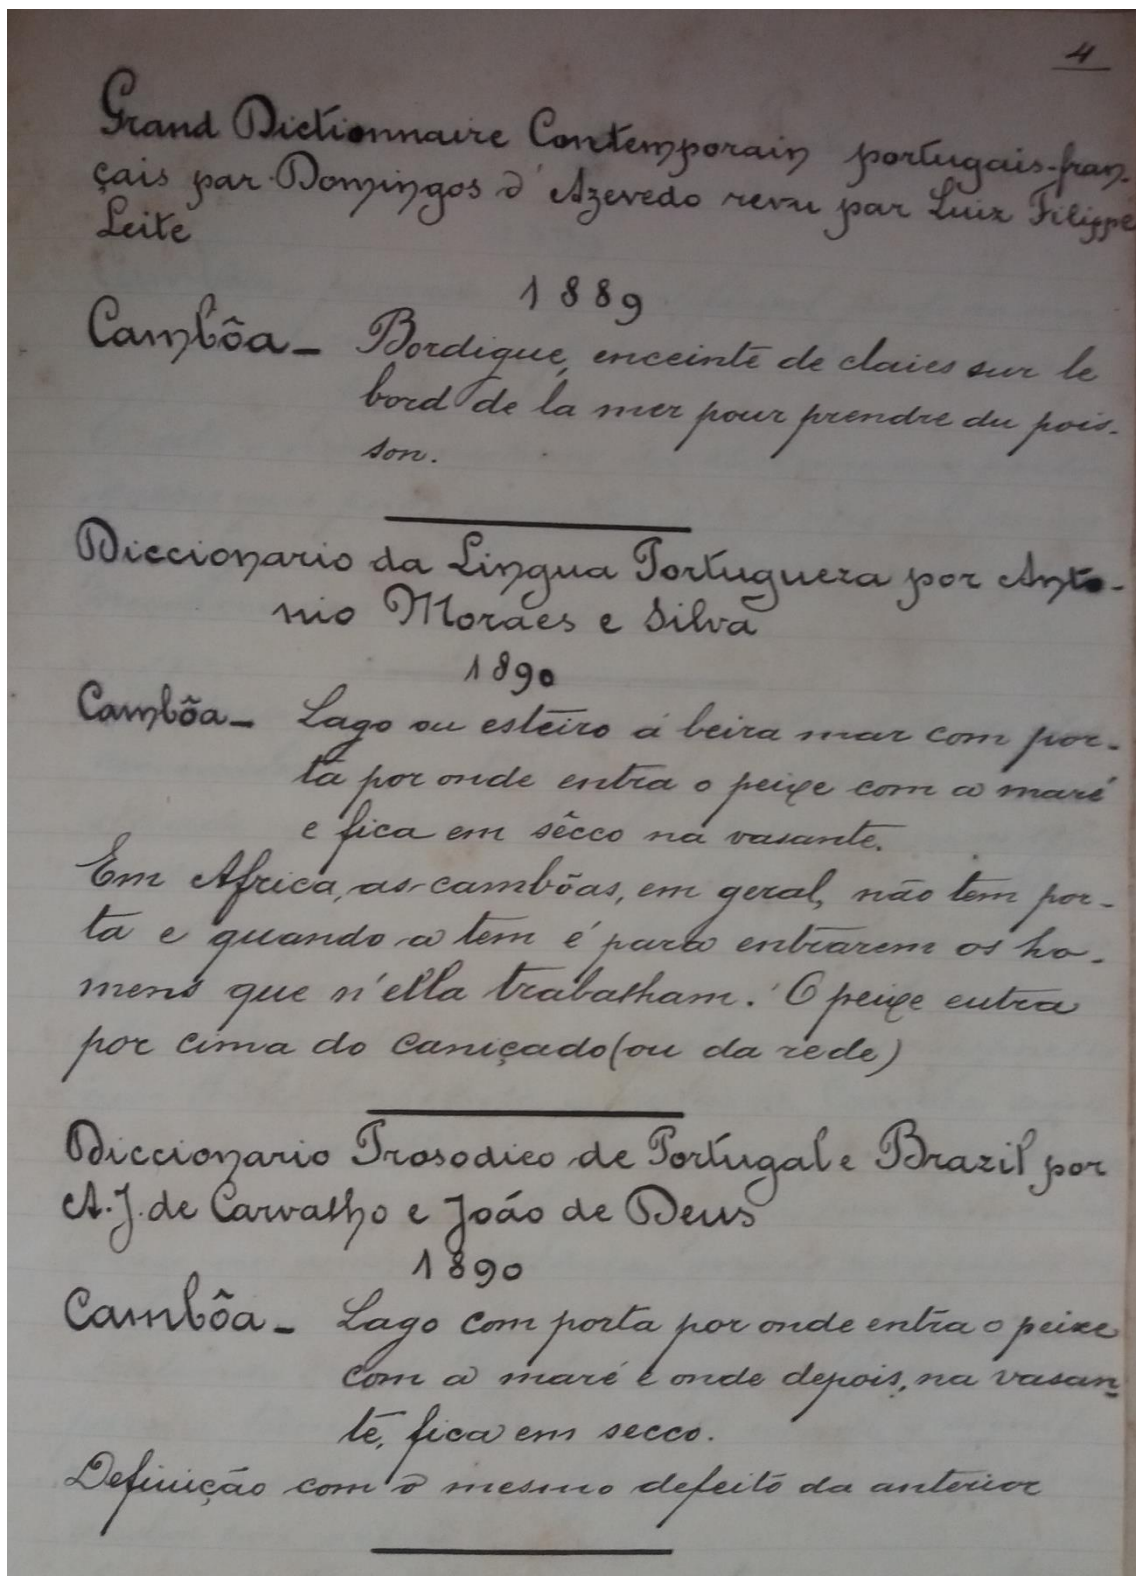 4
Grand Dictionnaire Contemporain portugais-fran-
çais par Domingos d'Azevedo revu par Luiz Filippe
Leite
1889
Cambôa — Bordigue, enceinte de claies sur le
bord de la mer pour prendre du pois-
son.
Diccionario da Lingua Portugueza por Anto-
nio Moraes e Silva
1890
Cambôa — Lago ou esteiro á beira mar com por-
ta por onde entra o peixe com a maré
e fica em sêcco na vasante.
Em Africa, as cambôas, em geral, não tem por-
ta e quando a tem é para entrarem os ho-
mens que n'ella trabalham. O peixe entra
por cima do caniçado (ou da rede)
Diccionario Prosodico de Portugal e Brazil por
A. J. de Carvalho e João de Deus
1890
Cambôa — Lago com porta por onde entra o peixe
com a maré e onde depois, na vasan-
te, fica em secco.
Definição com o mesmo defeito da anterior